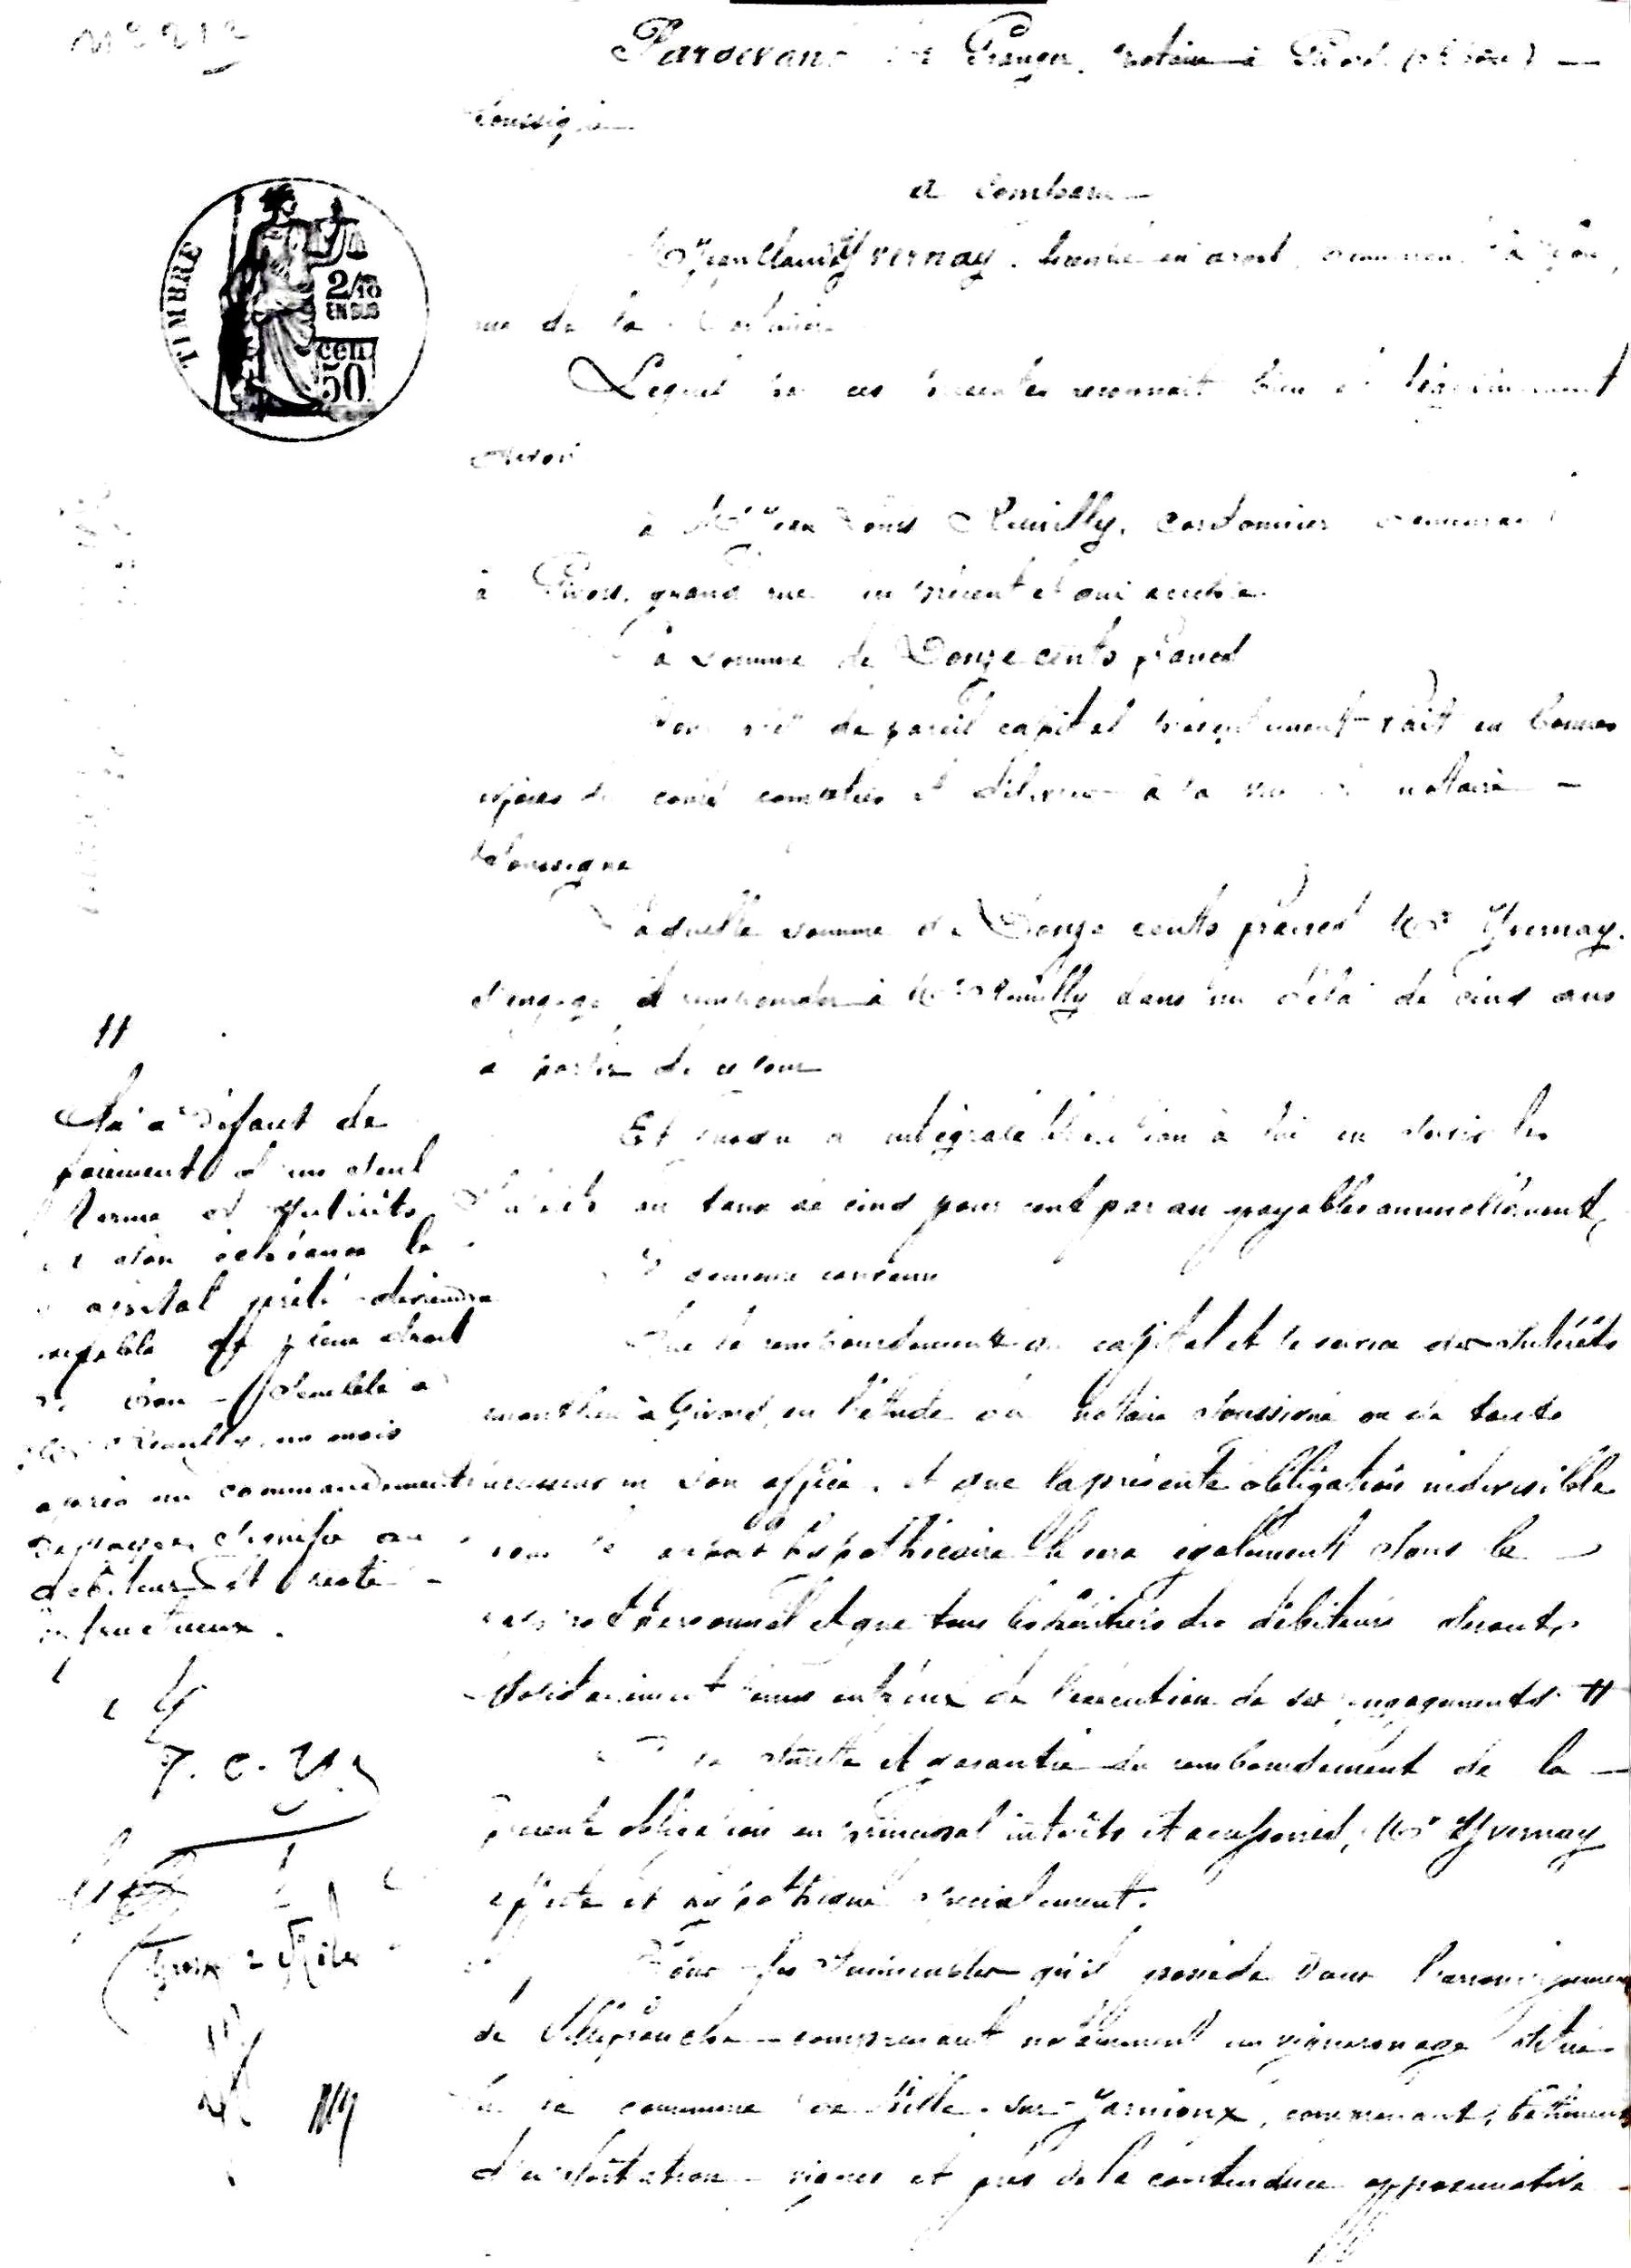 Pardevant Me Granger, notaire à Givors (Rhône)
Soussigné
A comparu
Mr Jean Claude Yvernay, licencié en droit, demeurant à
rue de la
Lequel par ces présentes reconnait bien et légitimement
devoir
à Mr Jean Louis Reuilly, cordonnier demeurant
à Givors, grand rue ici présent et qui accepte
La somme de Douze cents francs
Pour prêt de pareil capital présentement fait en bonnes
espèces de cours comptées et délivrées à la vue du notaire
Soussigné
Laquelle somme de Douze cents francs Mr Yvernay
s'engage à rembourser à Mr Reuilly dans un délai de cinq ans
à partir de ce jour
Et jusqu'à intégrale libération à lui en servir les
Intérêts au taux de cinq pour cent par an payables annuellement,
Il demeure convenu
Que le remboursement du capital et le service des Intérêts
auront lieu à Givors, en l'étude du notaire soussigné ou de tout
successeur en son office, et que la présente obligation indivisible
sous le rapport hypothécaire le sera également sous le
rapport personnel et que tous les héritiers du débiteur seront
solidairement tenus entr'eux de l'exécution de ses engagements #
A la sûreté et garantie du remboursement de la
présente obligation en principal intérêts et accessoires, Mr Yvernay
affecte et hypothèque spécialement.
Tous les Immeubles qu'il possède dans l'arrondissement
de Villefranche comprenant notamment un vigneronage situé
sur la commune de Ville-sur-Jarnioux, comprenant, bâtiments
d'exploitation vignes et prés de la contenance approximative
#
Qu'à défaut de
paiement d'un seul
terme d'Intérêts
à son échéance le
capital prêté deviendra
exigible de plein droit
si bon semble à
Mr Reuilly, un mois
après un commandement
de payer signifié au
débiteur et resté
infructueux.
TIMBRE
2/10
EN SUS
50 cen